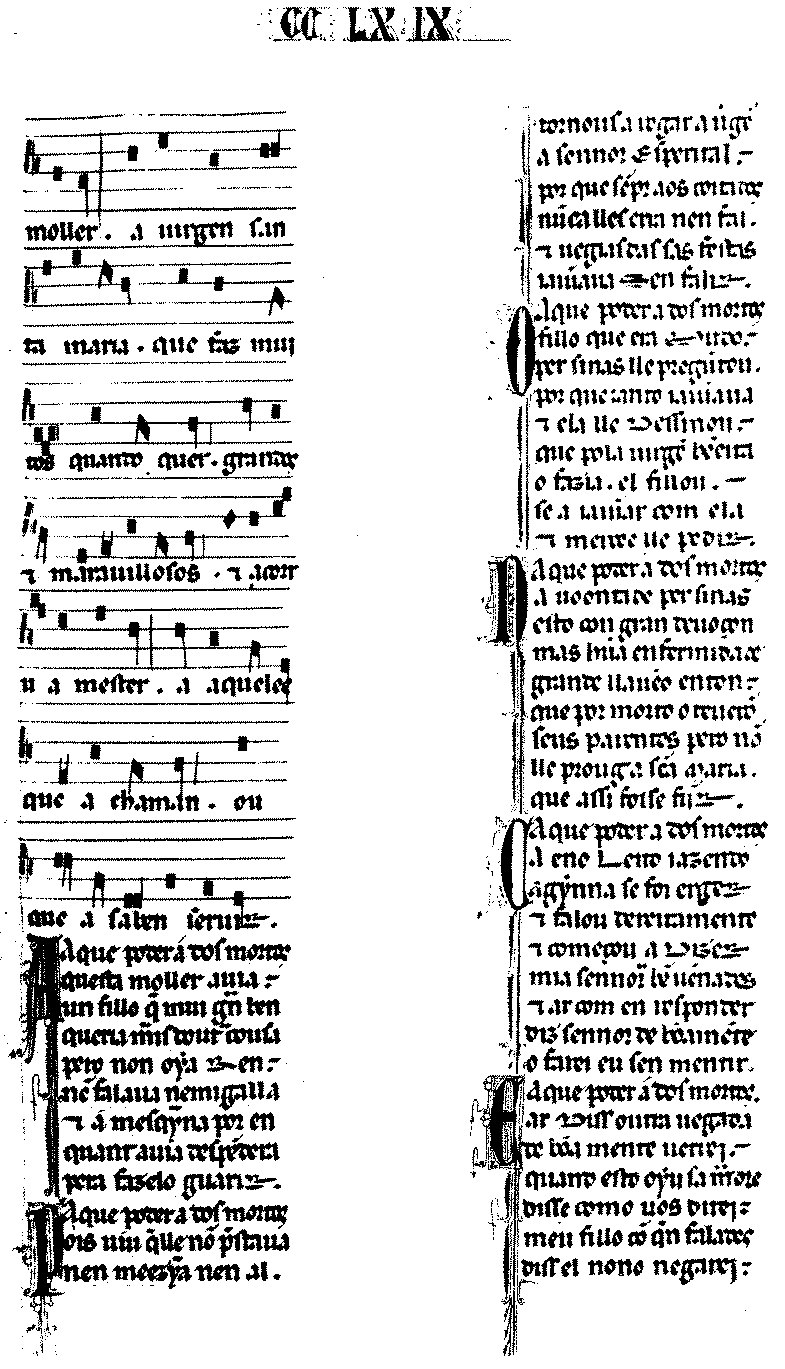 CC LX IX
moller . a uirgen san
ta maria . que faz mui
tos quanto quer . grandes
⁊ marauillosos . ⁊ acorr
u a mester . a aqueles
que a chaman . ou
que a saben seruir .
A que poder á dos mortos
questa moller auia :
un fillo q̃ mui gñ ben
queria
pero non oya
nẽ falaua nemigalla
⁊ a mesqỹna por en
quant auia despẽdera
pera fazelo guarir .
A que poder á dos mortos
ois uiu q̃lle nõ p̃staua
nen meezỹa nen al .
tornous a rogar a uirgẽ
a sennor Esperital :
por que sẽpr aos coitados
nũca lles erra nen fal .
⁊ uegias das sas festas
iaiũaua en faliz .
A que poder á dos mortos
fillo que era
per sinas lle preguntou .
por que tanto iaiũaua
⁊ ela lle
que pola uirgẽ beeita
o fazia . el fillou . —
se a iaiũar com ela
⁊ mercee lle pediz .
A que poder á dos mortos
a uoontade per sinas
esto con gran deuoçon
mas hũa enfermidade
grande
que por morto o teuerõ
seus parentes pero nõ
lle prouga sc̃a maria .
que assi fosse fiiz .
A que poder á dos mortos
a eno Leito iazendo
agỹnna se foi erger
⁊ falou dereitamente
⁊ começou a Dizer
mia sennor bẽ uẽnades
⁊ ar com en responder
diz sennor de bõa mẽte
o farei eu sen mentir .
A que poder á dos mortos .
ar Diss outra uegada
de bõa mente uerrei .
quando esto oỹu sa madre
disse como uos direi :
meu fillo cõ qñ falades
diss el nono negarei :